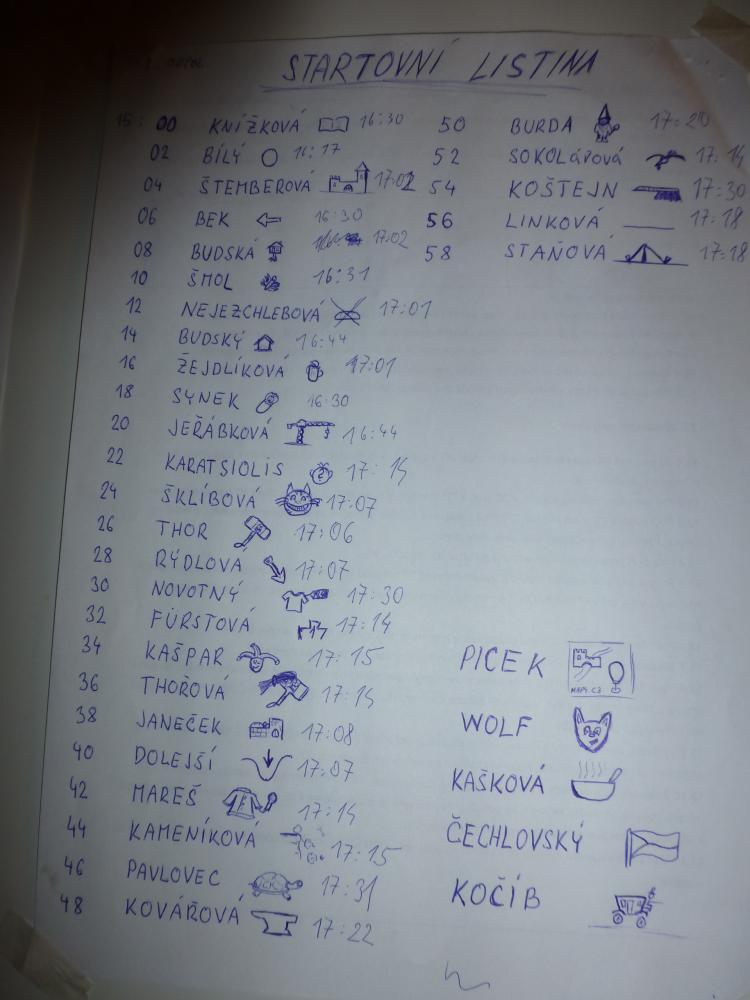 STARTOVNÍ LISTINA
15: 00 KNÍŽKOVÁ 16:30
02 BÍLÝ 16:17
04 ŠTEMBEROVÁ 17:02
06 BEK 16:30
08 BUDSKÁ 17:02
10 ŠMOL 16:31
12 NEJEZCHLEBOVÁ 17:01
14 BUDSKÝ 16:44
16 ŽEJDLÍKOVÁ 17:01
18 SYNEK 16:30
20 JEŘÁBKOVÁ 16:44
22 KARATSIOLIS 17:14
24 ŠKLÍBOVÁ 17:07
26 THOR 17:06
28 RÝDLOVÁ 17:07
30 NOVOTNÝ 17:30
32 FÜRSTOVÁ 17:14
34 KAŠPAR 17:15
36 THOŘOVÁ 17:14
38 JANEČEK 17:08
40 DOLEJŠÍ 17:07
42 MAREŠ 17:14
44 KAMENÍKOVÁ 17:15
46 PAVLOVEC 17:31
48 KOVÁŘOVÁ 17:22
50 BURDA 17:20
52 SOKOLÁŘOVÁ 17:14
54 KOŠTEJN 17:30
56 LINKOVÁ 17:18
58 STAŇOVÁ 17:18
PICEK
MAPY.CZ
WOLF
KAŠKOVÁ
ČECHLOVSKÝ
KOČÍB